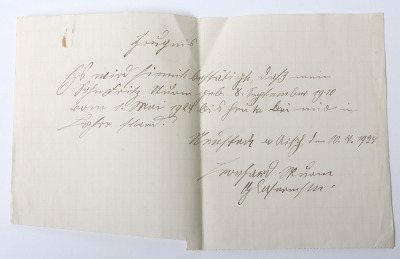 Zeugnis
Es wird hiermit bestätigt, daß mein
Sohn Fritz Sturm geb. 8. September 1910
vom 1. Mai 1924 bis heute bei mir in
Lehre stand.
Neustadt a. Aisch, den 10. 4.
Leonhard Sturm